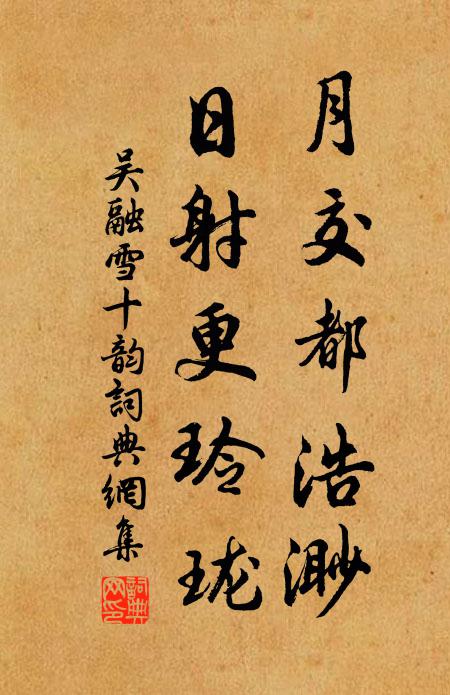 月交都浩渺
日射更玲珑
吴融雪十韵詞典網集
詞典網印